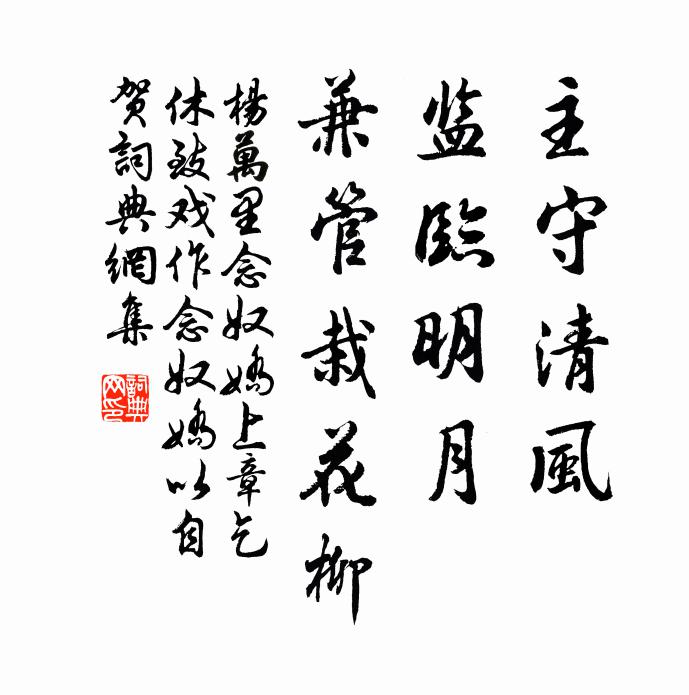 主守清風
监臨明月
兼管栽花柳
楊萬里念奴嬌上章乞
休致戏作念奴嬌以自
贺詞典網集
詞典
网印